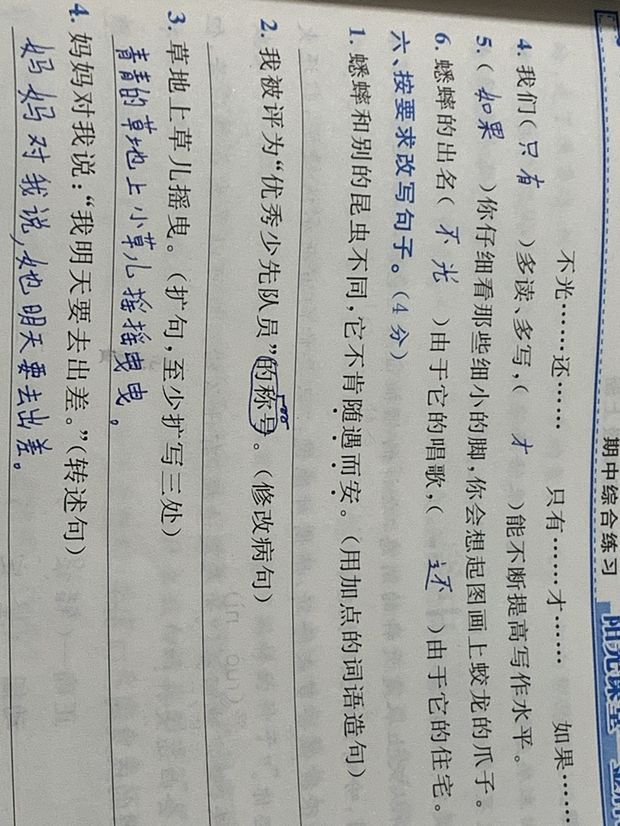 期中综合练习
不光……还…… 只有……才…… 如果……
4. 我们(只有)多读、多写,(才)能不断提高写作水平。
5. (如果)你仔细看那些细小的脚,你会想起图画上蛟龙的爪子。
6. 蟋蟀的出名(不光)由于它的唱歌,(还)由于它的住宅。
六、按要求改写句子。(4分)
1. 蟋蟀和别的昆虫不同,它不肯随遇而安。(用加点的词语造句)
2. 我被评为“优秀少先队员”的称号。(修改病句)
3. 草地上草儿摇曳。(扩句,至少扩写三处)
青青的草地上小草儿摇摇曳曳。
4. 妈妈对我说:“我明天要去出差。”(转述句)
妈妈对我说,她明天要去出差。